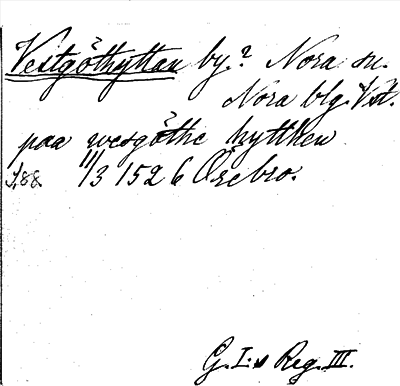 Vestgöthyttan by? Nora sn.
Nora blg. Vstm.
paa wesgøthe hyttken
S.88 11/3 1526 Örebro.
G. I:s Reg. III.